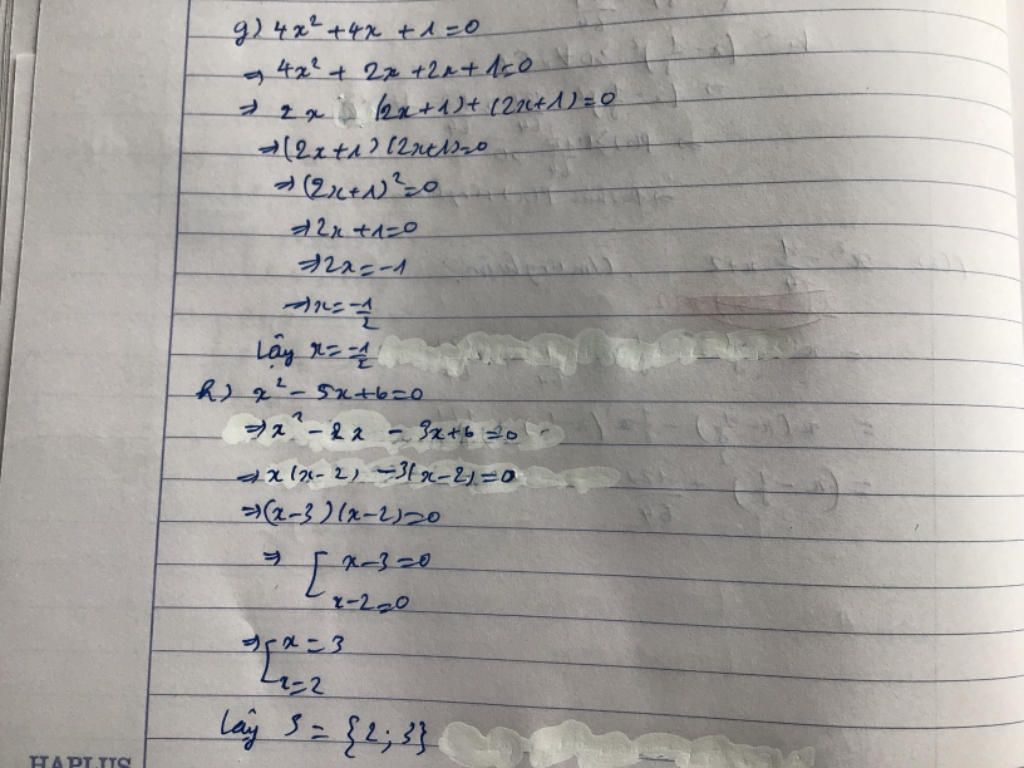 g) 4x² + 4x + 1 = 0
⇒ 4x² + 2x + 2x + 1 = 0
⇒ 2x (2x + 1) + (2x + 1) = 0
⇒ (2x + 1) (2x + 1) = 0
⇒ (2x + 1)² = 0
⇒ 2x + 1 = 0
⇒ 2x = -1
⇒ x = -1/2
Lậy x = -1/2
h) x² - 5x + 6 = 0
⇒ x² - 2x - 3x + 6 = 0
⇒ x (x - 2) - 3(x - 2) = 0
⇒ (x - 3) (x - 2) = 0
⇒ [ x - 3 = 0
x - 2 = 0
⇒ [ x = 3
x = 2
Lây S = {2; 3}
HAPLUS